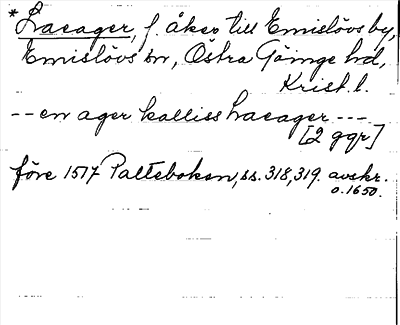 *Laeager, f. åker till Emislövs by,
Emislövs sn, Östra Göinge hd,
Krist. l.
-- en ager kalliss Laeager ---
[2 ggr]
före 1517 Palteboken, ss. 318, 319. avskr.
o. 1650.